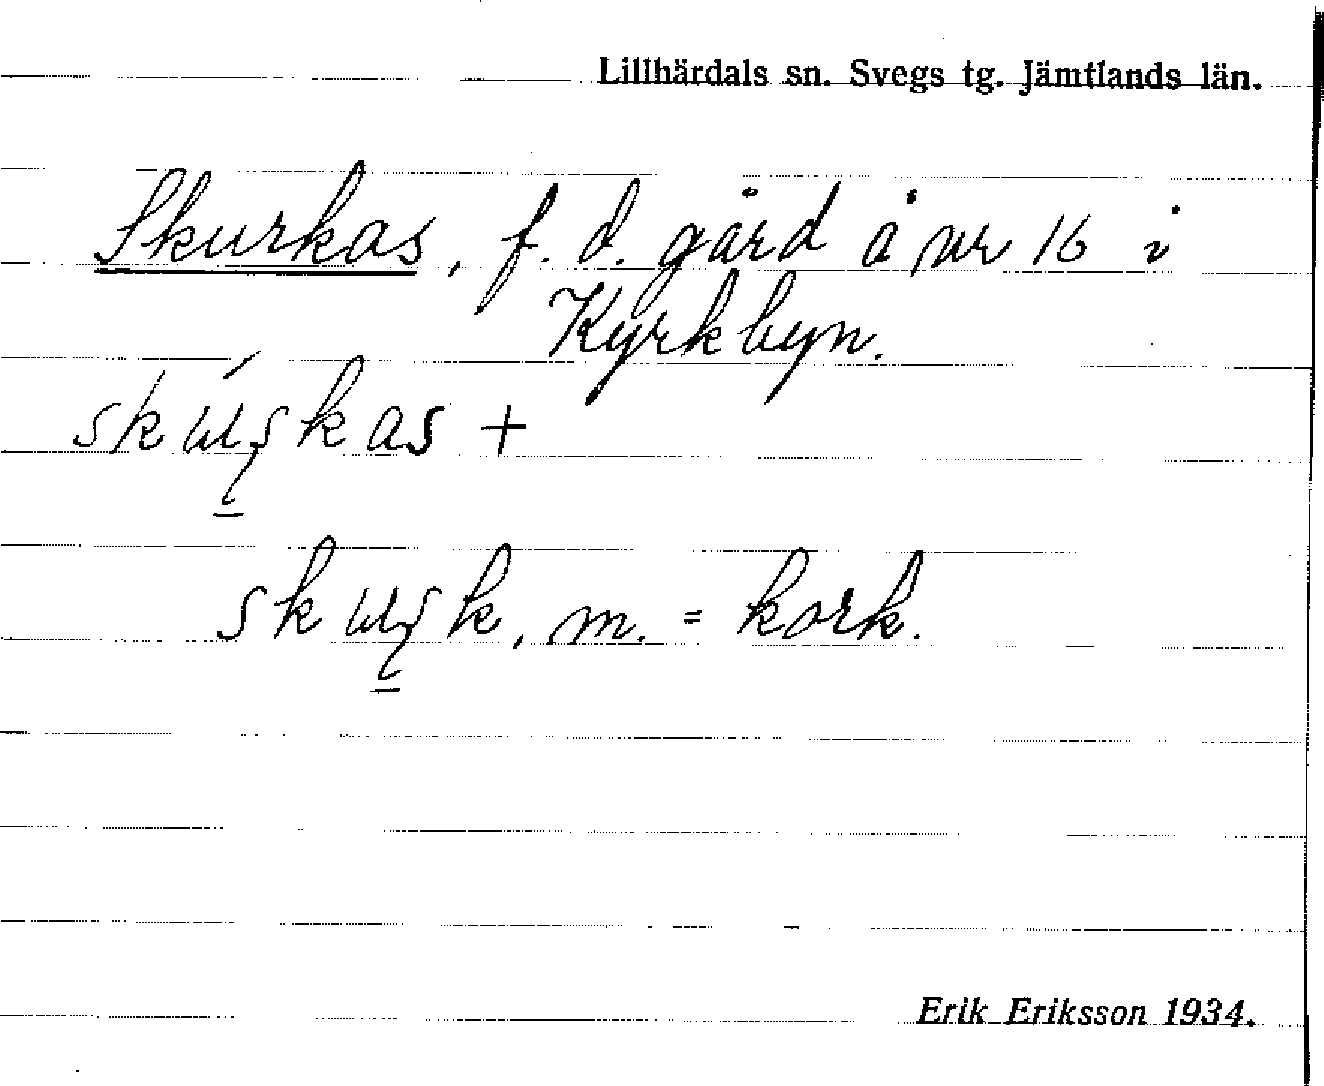 Lillhärdals sn. Svegs tg. Jämtlands län.
Skurkas, f.d. gård å nr 16 i
Kyrkbyn.
skúʂkas +
skuʂk, m. = kork.
Erik Eriksson 1934.